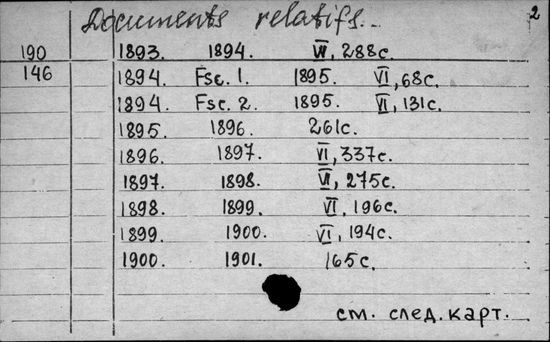 Documents relatifs.. 2
190 1893. 1894. VI, 288c.
146 1894. Fsc. 1. 1895. VI, 68c.
1894. Fsc. 2. 1895. VI, 131c.
1895. 1896. 261c.
1896. 1897. VI, 337c.
1897. 1898. VI, 275c.
1898. 1899. VI, 196c.
1899. 1900. VI, 194c.
1900. 1901. 165c.
см. след. карт.